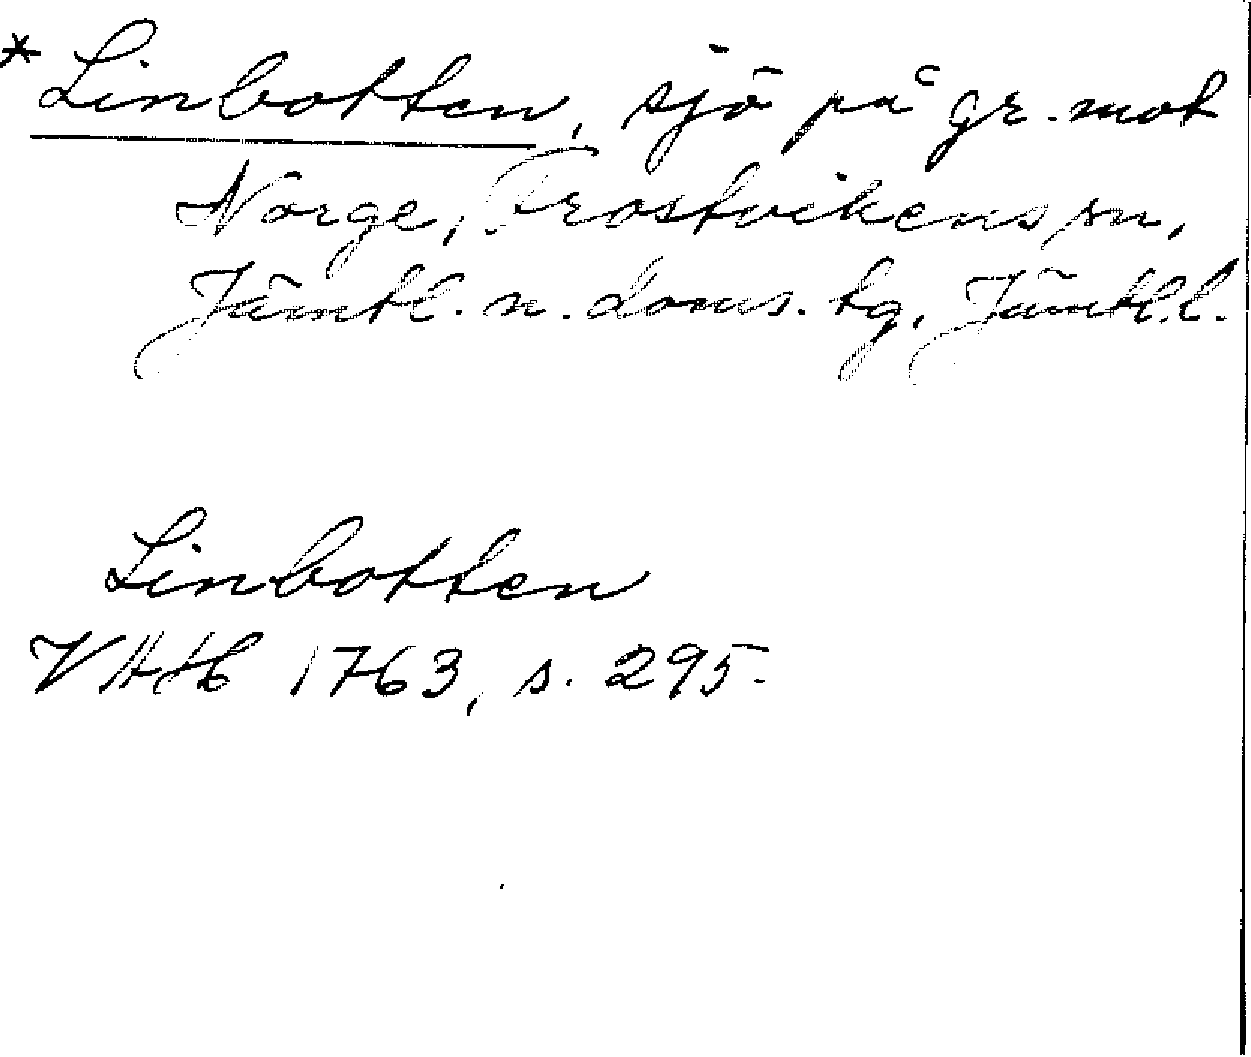 * Linbotten, sjö på gr. mot
Norge, Frostvikens sn,
Jämtl. n. doms. tg, Jämtl. l.
Linbotten
VHAH 1763, s. 295.